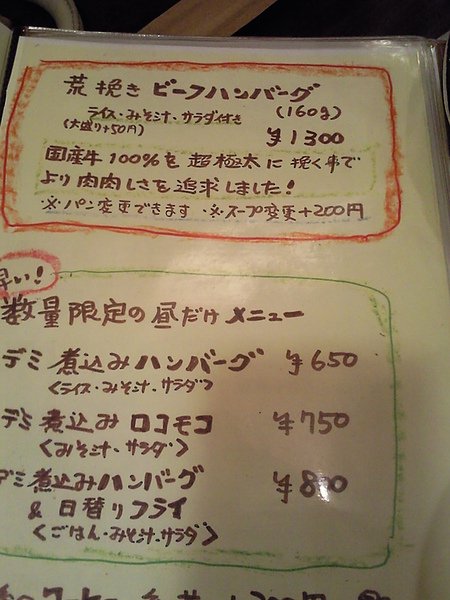 荒挽き ビーフハンバーグ
ライス・みそ汁・サラダ付き (160g)
(大盛り+50円) ¥1300
国産牛100%を超極太に挽く事で
より肉肉しさを追求しました!
※パン変更できます ・※スープ変更+200円
早い!
数量限定の昼だけメニュー
デミ煮込みハンバーグ ¥650
<ライス・みそ汁・サラダ>
デミ煮込みロコモコ ¥750
<みそ汁・サラダ>
デミ煮込みハンバーグ ¥800
& 日替りフライ
<ごはん・みそ汁・サラダ>